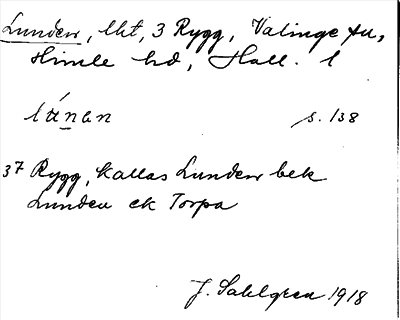 Lunden, lht, 3 Rygg, Valinge sn,
Himle hd, Hall. l
lúnan s. 138
3⁷ Rygg, kallas Lunden bek
Lunden ek Torpa
J. Sahlgren 1918